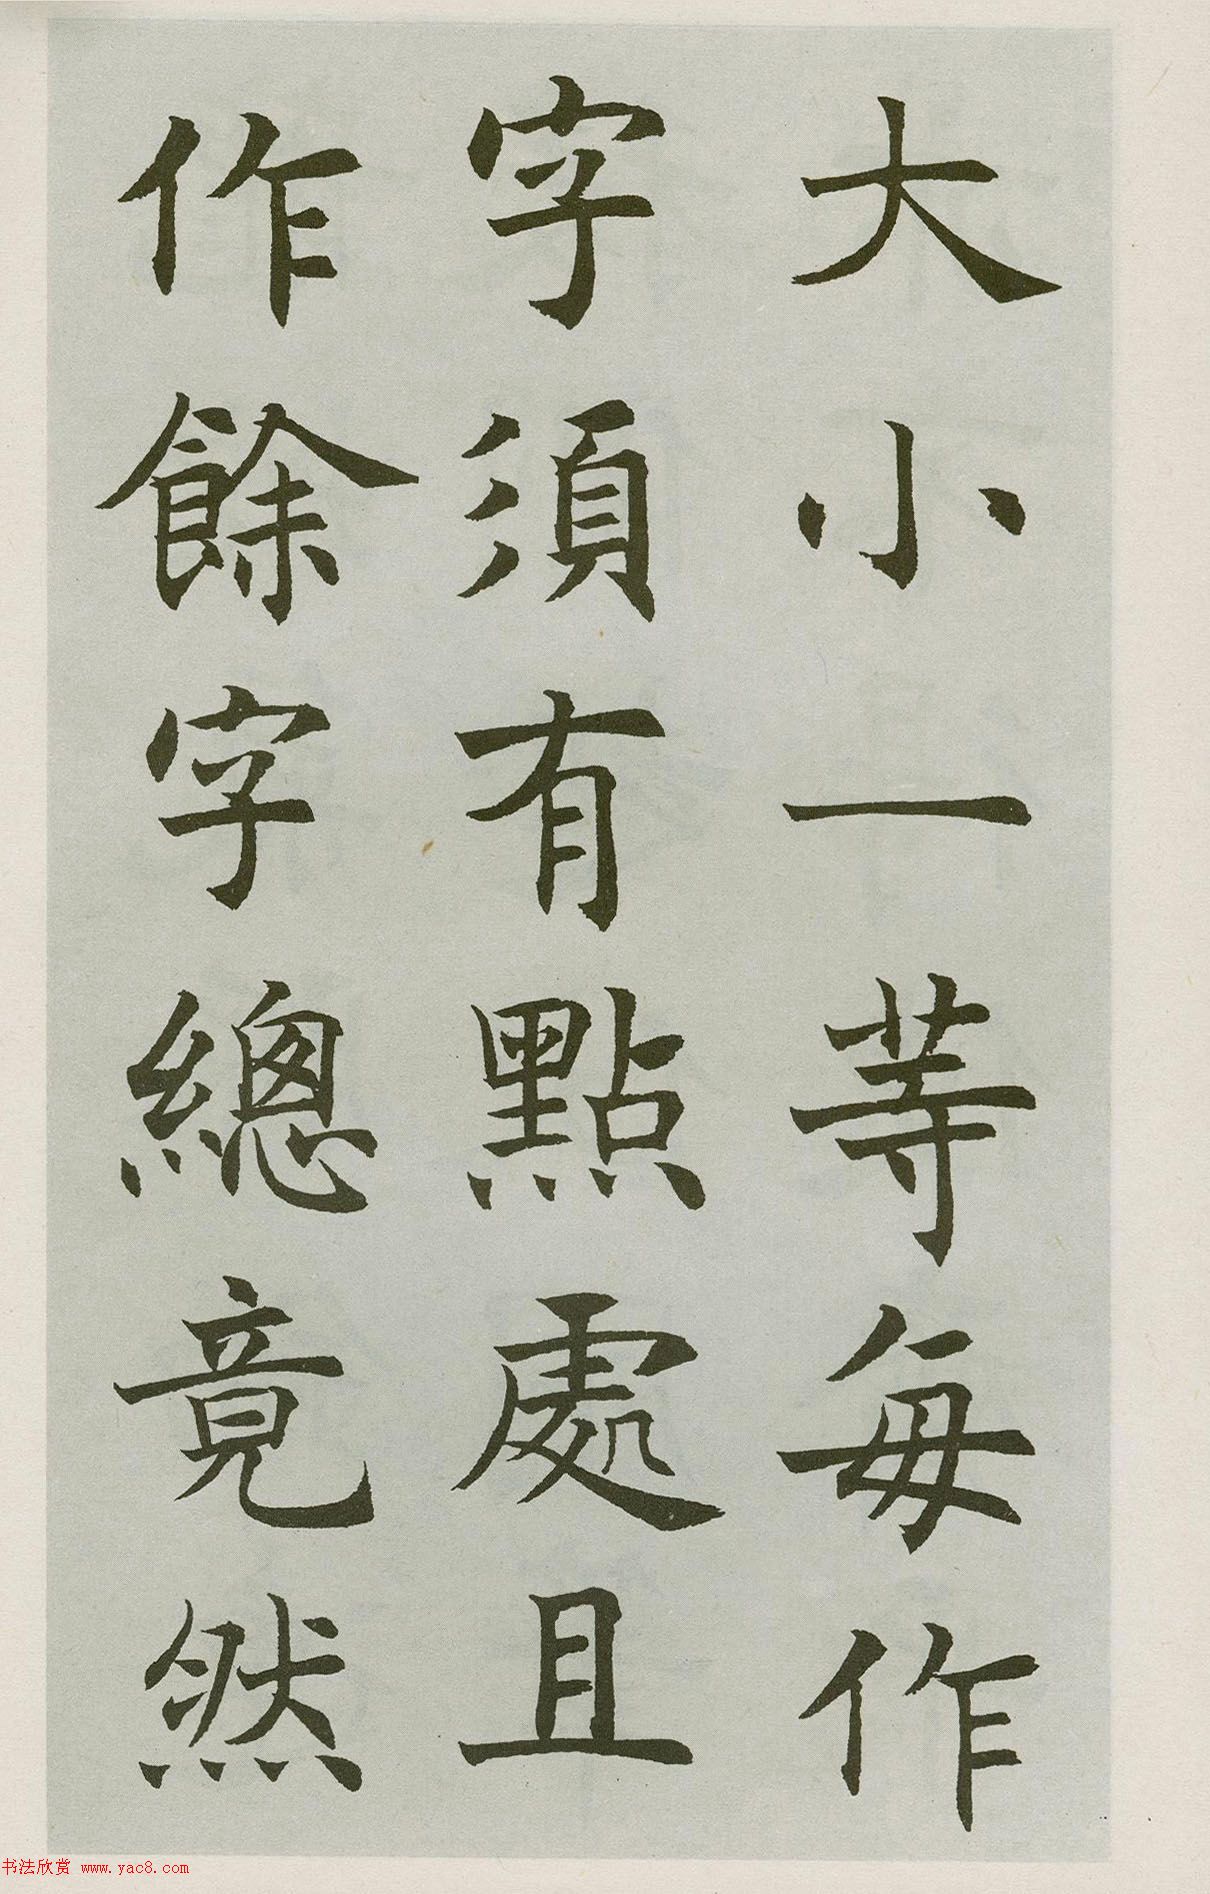 大小一等每作
字須有點處且
作餘字總竟然
书法欣赏 www.yac8.com